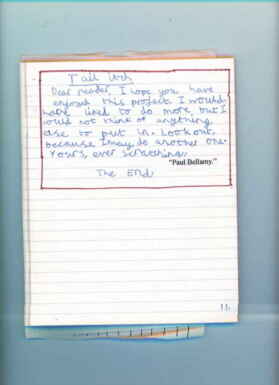 Tail
Dear reader, I hope you have
enjoyed this project I would
have liked to do more, but I
could not think of anything
else to put in. Look out,
because I may do another one.
Yours, ever scratching,
"Paul Bellamy."
The End